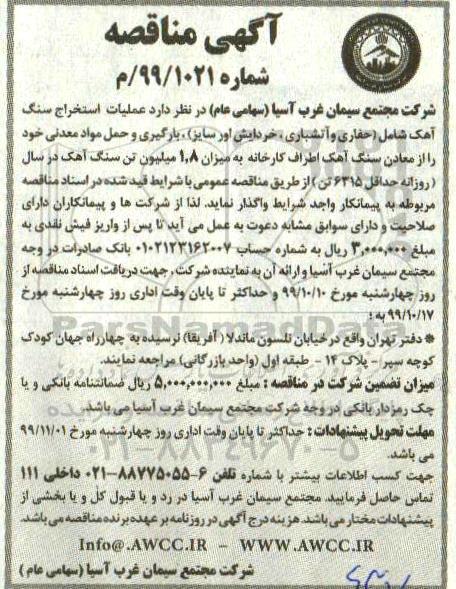 آگهی مناقصه
شماره ۹۹/۱۰۲۱/م
شرکت مجتمع سیمان غرب آسیا (سهامی عام) در نظر دارد عملیات استخراج سنگ
آهک شامل (حفاری وآتشباری ، خردایش اور سایز) ، بارگیری و حمل مواد معدنی خود
را از معادن سنگ آهک اطراف کارخانه به میزان ۱٫۸ میلیون تن سنگ آهک در سال
(روزانه حداقل ۶۳۱۵ تن) از طریق مناقصه عمومی با شرایط قید شده در اسناد مناقصه
مربوطه به پیمانکار واجد شرایط واگذار نماید. لذا از شرکت ها و پیمانکاران دارای
صلاحیت و دارای سوابق مشابه دعوت به عمل می آید تا پس از واریز فیش نقدی به
مبلغ ۳,۰۰۰,۰۰۰ ریال به شماره حساب ۰۱۰۲۱۲۳۱۶۲۰۰۷ بانک صادرات در وجه
مجتمع سیمان غرب آسیا و ارائه آن به نماینده شرکت ، جهت دریافت اسناد مناقصه از
روز چهارشنبه مورخ ۹۹/۱۰/۱۰ و حداکثر تا پایان وقت اداری روز چهارشنبه مورخ
۹۹/۱۰/۱۷ به :
* دفتر تهران واقع در خیابان نلسون ماندلا ( آفریقا) نرسیده به چهارراه جهان کودک
کوچه سپر۱- پلاک ۱۴ - طبقه اول (واحد بازرگانی) مراجعه نمایند.
میزان تضمین شرکت در مناقصه : مبلغ ۵,۰۰۰,۰۰۰,۰۰۰ ریال ضمانتنامه بانکی و یا
چک رمزدار بانکی در وجه شرکت مجتمع سیمان غرب آسیا می باشد.
مهلت تحویل پیشنهادات : حداکثر تا پایان وقت اداری روز چهارشنبه مورخ ۹۹/۱۱/۰۱
می باشد.
جهت کسب اطلاعات بیشتر با شماره تلفن ۶-۸۸۷۷۵۰۵۵-۰۲۱ داخلی ۱۱۱
تماس حاصل فرمایید. مجتمع سیمان غرب آسیا در رد و یا قبول کل و یا بخشی از
پیشنهادات مختار می باشد. هزینه درج آگهی در روزنامه بر عهده برنده مناقصه می باشد.
Info@.AWCC.IR – WWW.AWCC.IR
شرکت مجتمع سیمان غرب آسیا (سهامی عام)
ParsNamadData
۰۲۱-۸۸۳۴۹۶۷۰-۵